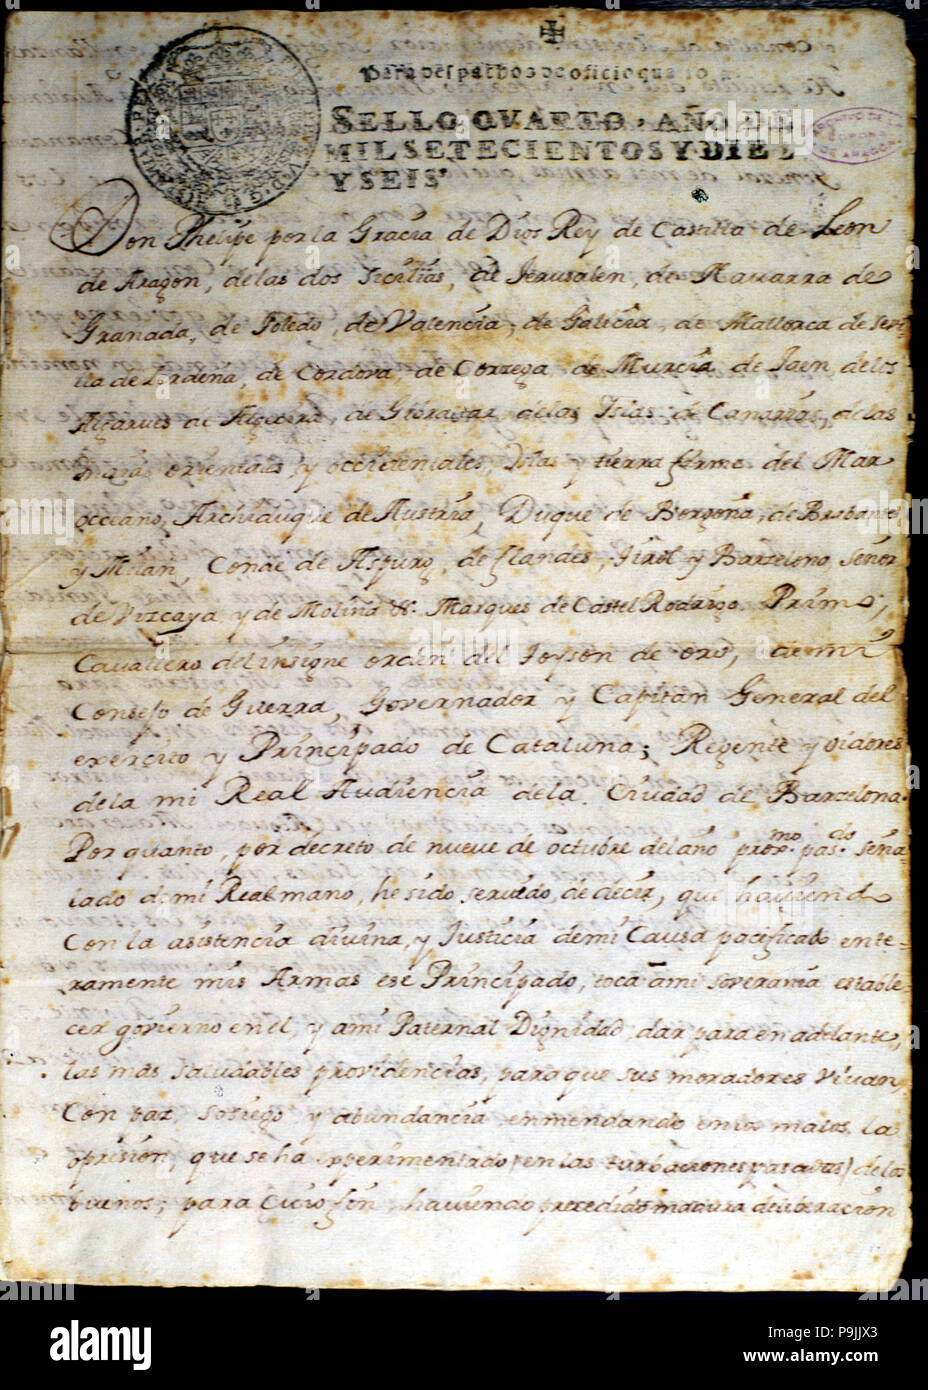 Para despachos de oficio quatro
SELLO QVARTO, AÑO DE
MIL SETECIENTOS Y DIEZ
Y SEIS.
Don Phelipe por la Gracia de Dios Rey de Castilla de Leon
de Aragon, de las dos Sicilias, de Jerusalen, de Navarra de
Granada, de Toledo, de Valencia, de Galicia, de Mallorca de Sevi
lla de Zerdeña, de Cordova, de Corzega, de Murcia de Jaen, de los
Algarves de Algecira, de Gibraltar, de las Islas de Canarias, de las
indias orientales y occidentales, Islas y tierra firme del Mar
occeano, Archiduque de Austria, Duque de Borgoña, de Brabante
y Milan, Conde de Aspurg, de Flandes, Tirol y Barcelona, Señor
de Vizcaya y de Molina &. Marques de Castel Rodrigo, Primo,
Cavallero del insigne orden del Toyson de oro, de mi
Consejo de Guerra, Governador y Capitan General del
exercito y Principado de Cataluña; Regente y oidores
de la mi Real Audiencia de la Ciudad de Barcelona.
Por quanto, por decreto de nueve de octubre del año prox.mo pas.do seña
lado de mi Real mano, he sido servido, de decir, que haviend
Con la asistencia divina, y Justicia de mi Causa pacificado ente-
ramente mis Armas ese Principado, toca a mi soverania estable-
cer govierno en el, y a mi Paternal Dignidad dar para en adelante,
las mas saludables providencias, para que sus moradores vivan,
Con paz, sosiego y abundancia enmendando en los malos, la
opresion, que se ha experimentado (en las turbaciones pasadas) de los
buenos; para cuio fin, haviendo precedido madura deliberacion
alamy
alamy stock photo
P9JJX3
www.alamy.com